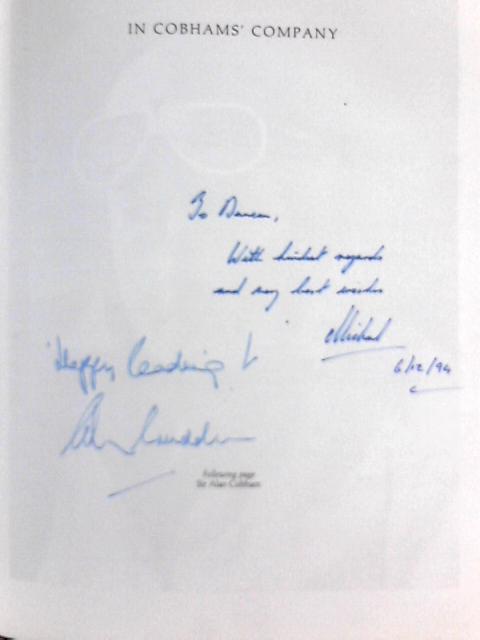 IN COBHAMS' COMPANY
To Duncan,
With kindest regards
and my best wishes
Michael
6/12/94
'Happy Reading!'
Following page
Sir Alan Cobham